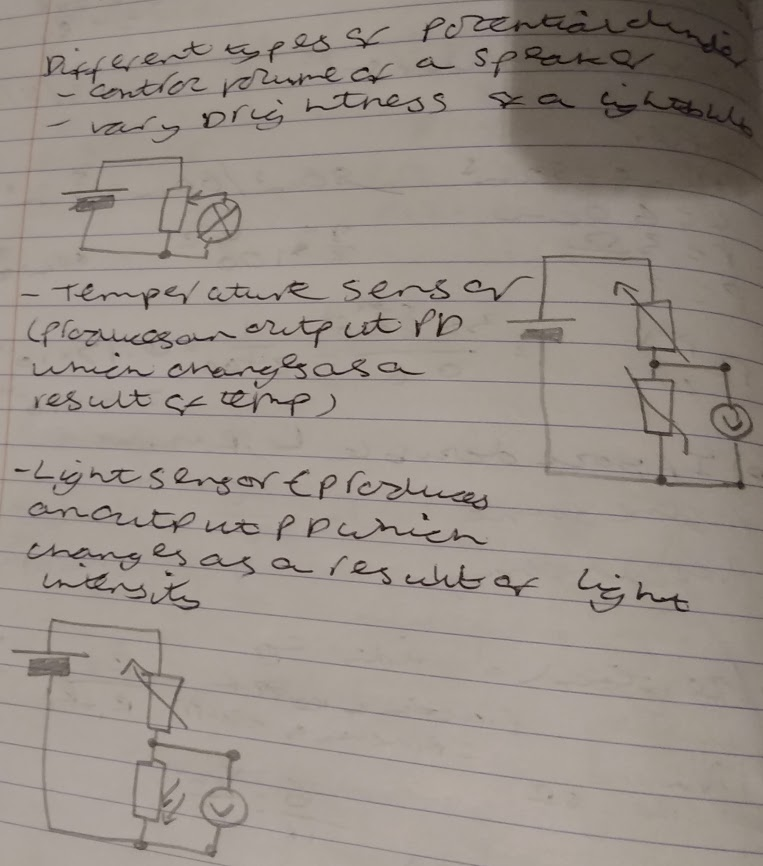 Different types of potential divider
- control volume of a speaker
- vary brightness of a lightbulb
- Temperature sensor
(produces an output PD
which changes as a
result of temp)
- Light sensor (produces
an output PD which
changes as a result of light
intensity
V
V